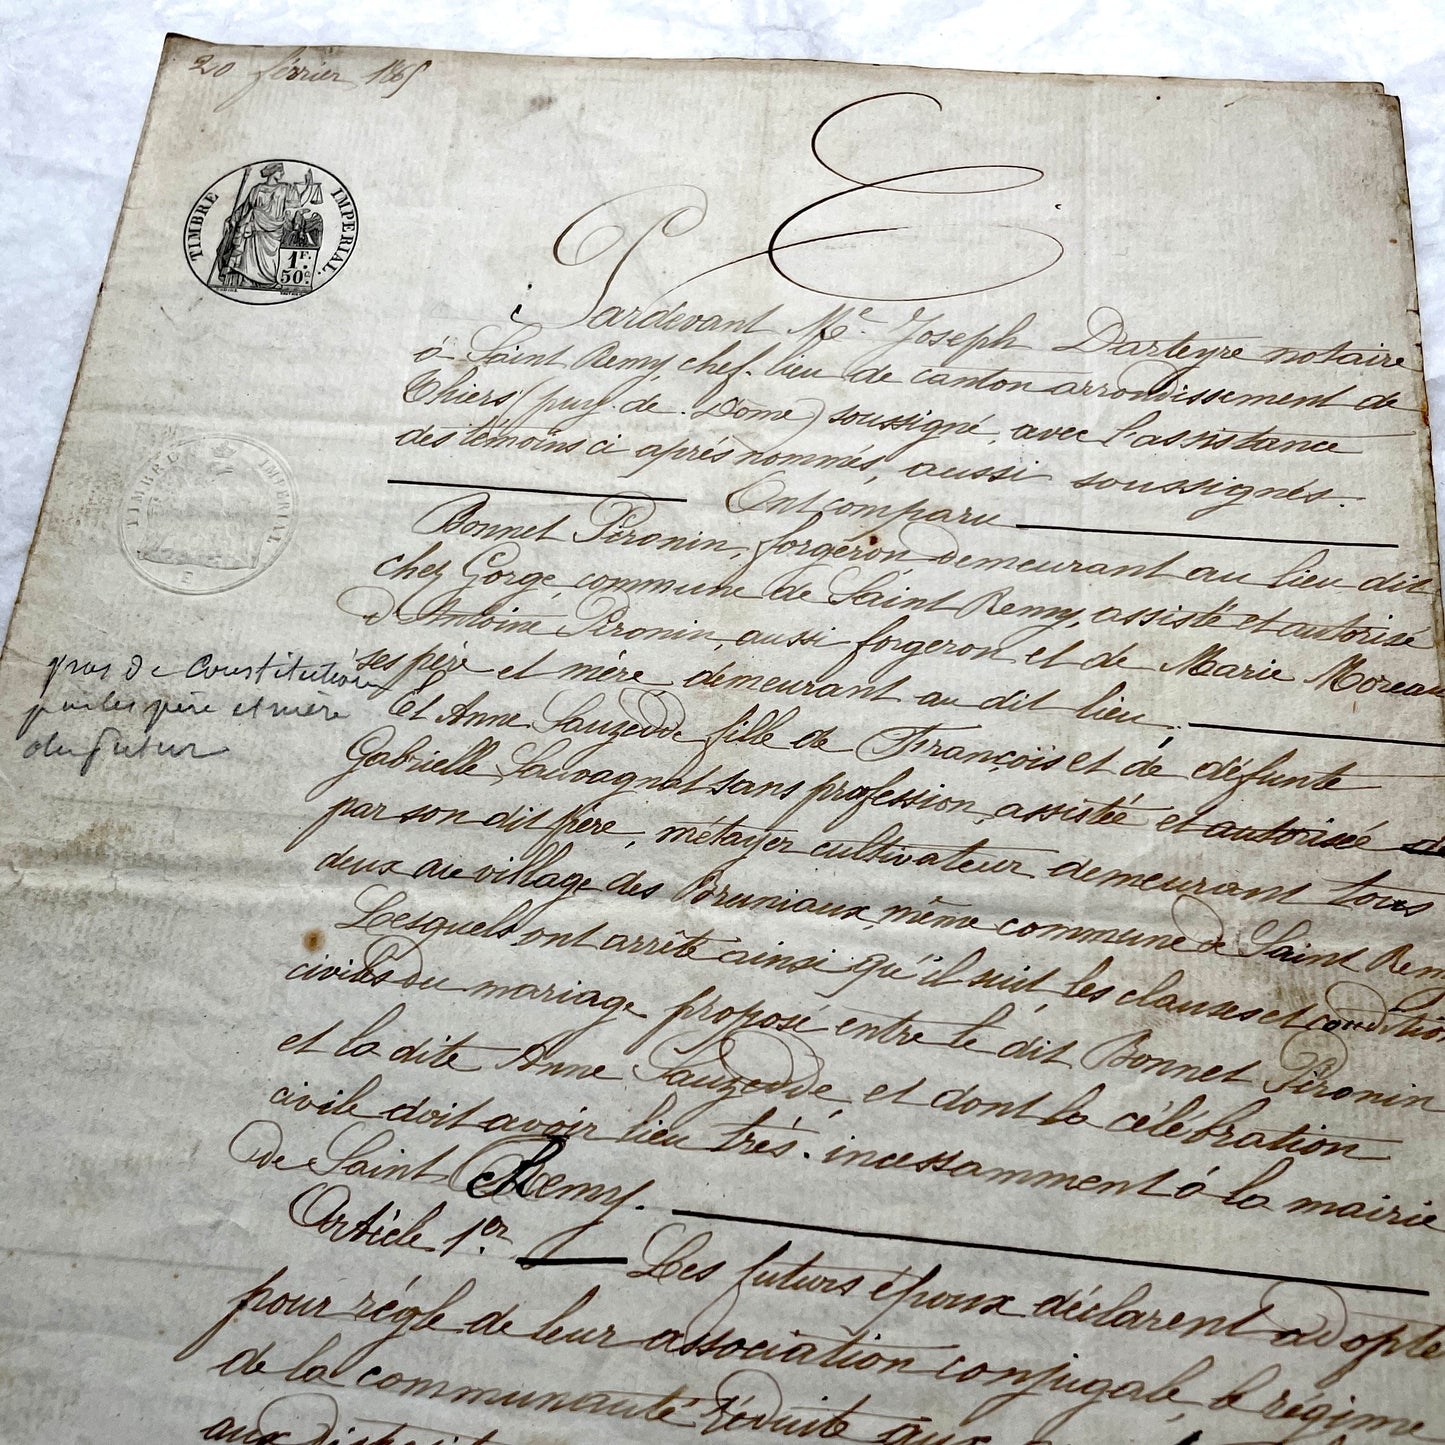 20 février 1865
TIMBRE IMPERIAL.
1F.
50c
Pardevant Me Joseph Darteyre notaire
à Saint Remy, chef-lieu de canton arrondissement de
Thiers (puy-de-Dome) soussigné, avec l'assistance
des témoins ci après nommés, aussi soussignés.
Ont comparu
TIMBRE IMPERIAL
Bonnet Pironin, forgeron, demeurant au lieu dit
chez Gorge, commune de Saint Remy, assisté et autorisé
d'Antoine Pironin, aussi forgeron et de Marie Moreau
ses père et mère demeurant au dit lieu.
pas de Constitution
par les père et mère
du futur
Et Anne Sauzedde fille de François et de défunte
Gabrielle Sauvagnat sans profession, assistée et autorisée de
par son dit père, métayer cultivateur demeurant tous
deux au village des Bruniaux, même commune de Saint Remy
Lesquels ont arrêté ainsi qu'il suit, les clauses et condition
civiles du mariage proposé entre le dit Bonnet Pironin
et la dite Anne Sauzedde, et dont la célébration
civile doit avoir lieu très-incessamment à la mairie
de Saint Remy.
Article 1er. Les futurs époux déclarent adopte
pour régle de leur association conjugale, le régime
de la communauté réduite aux
aux